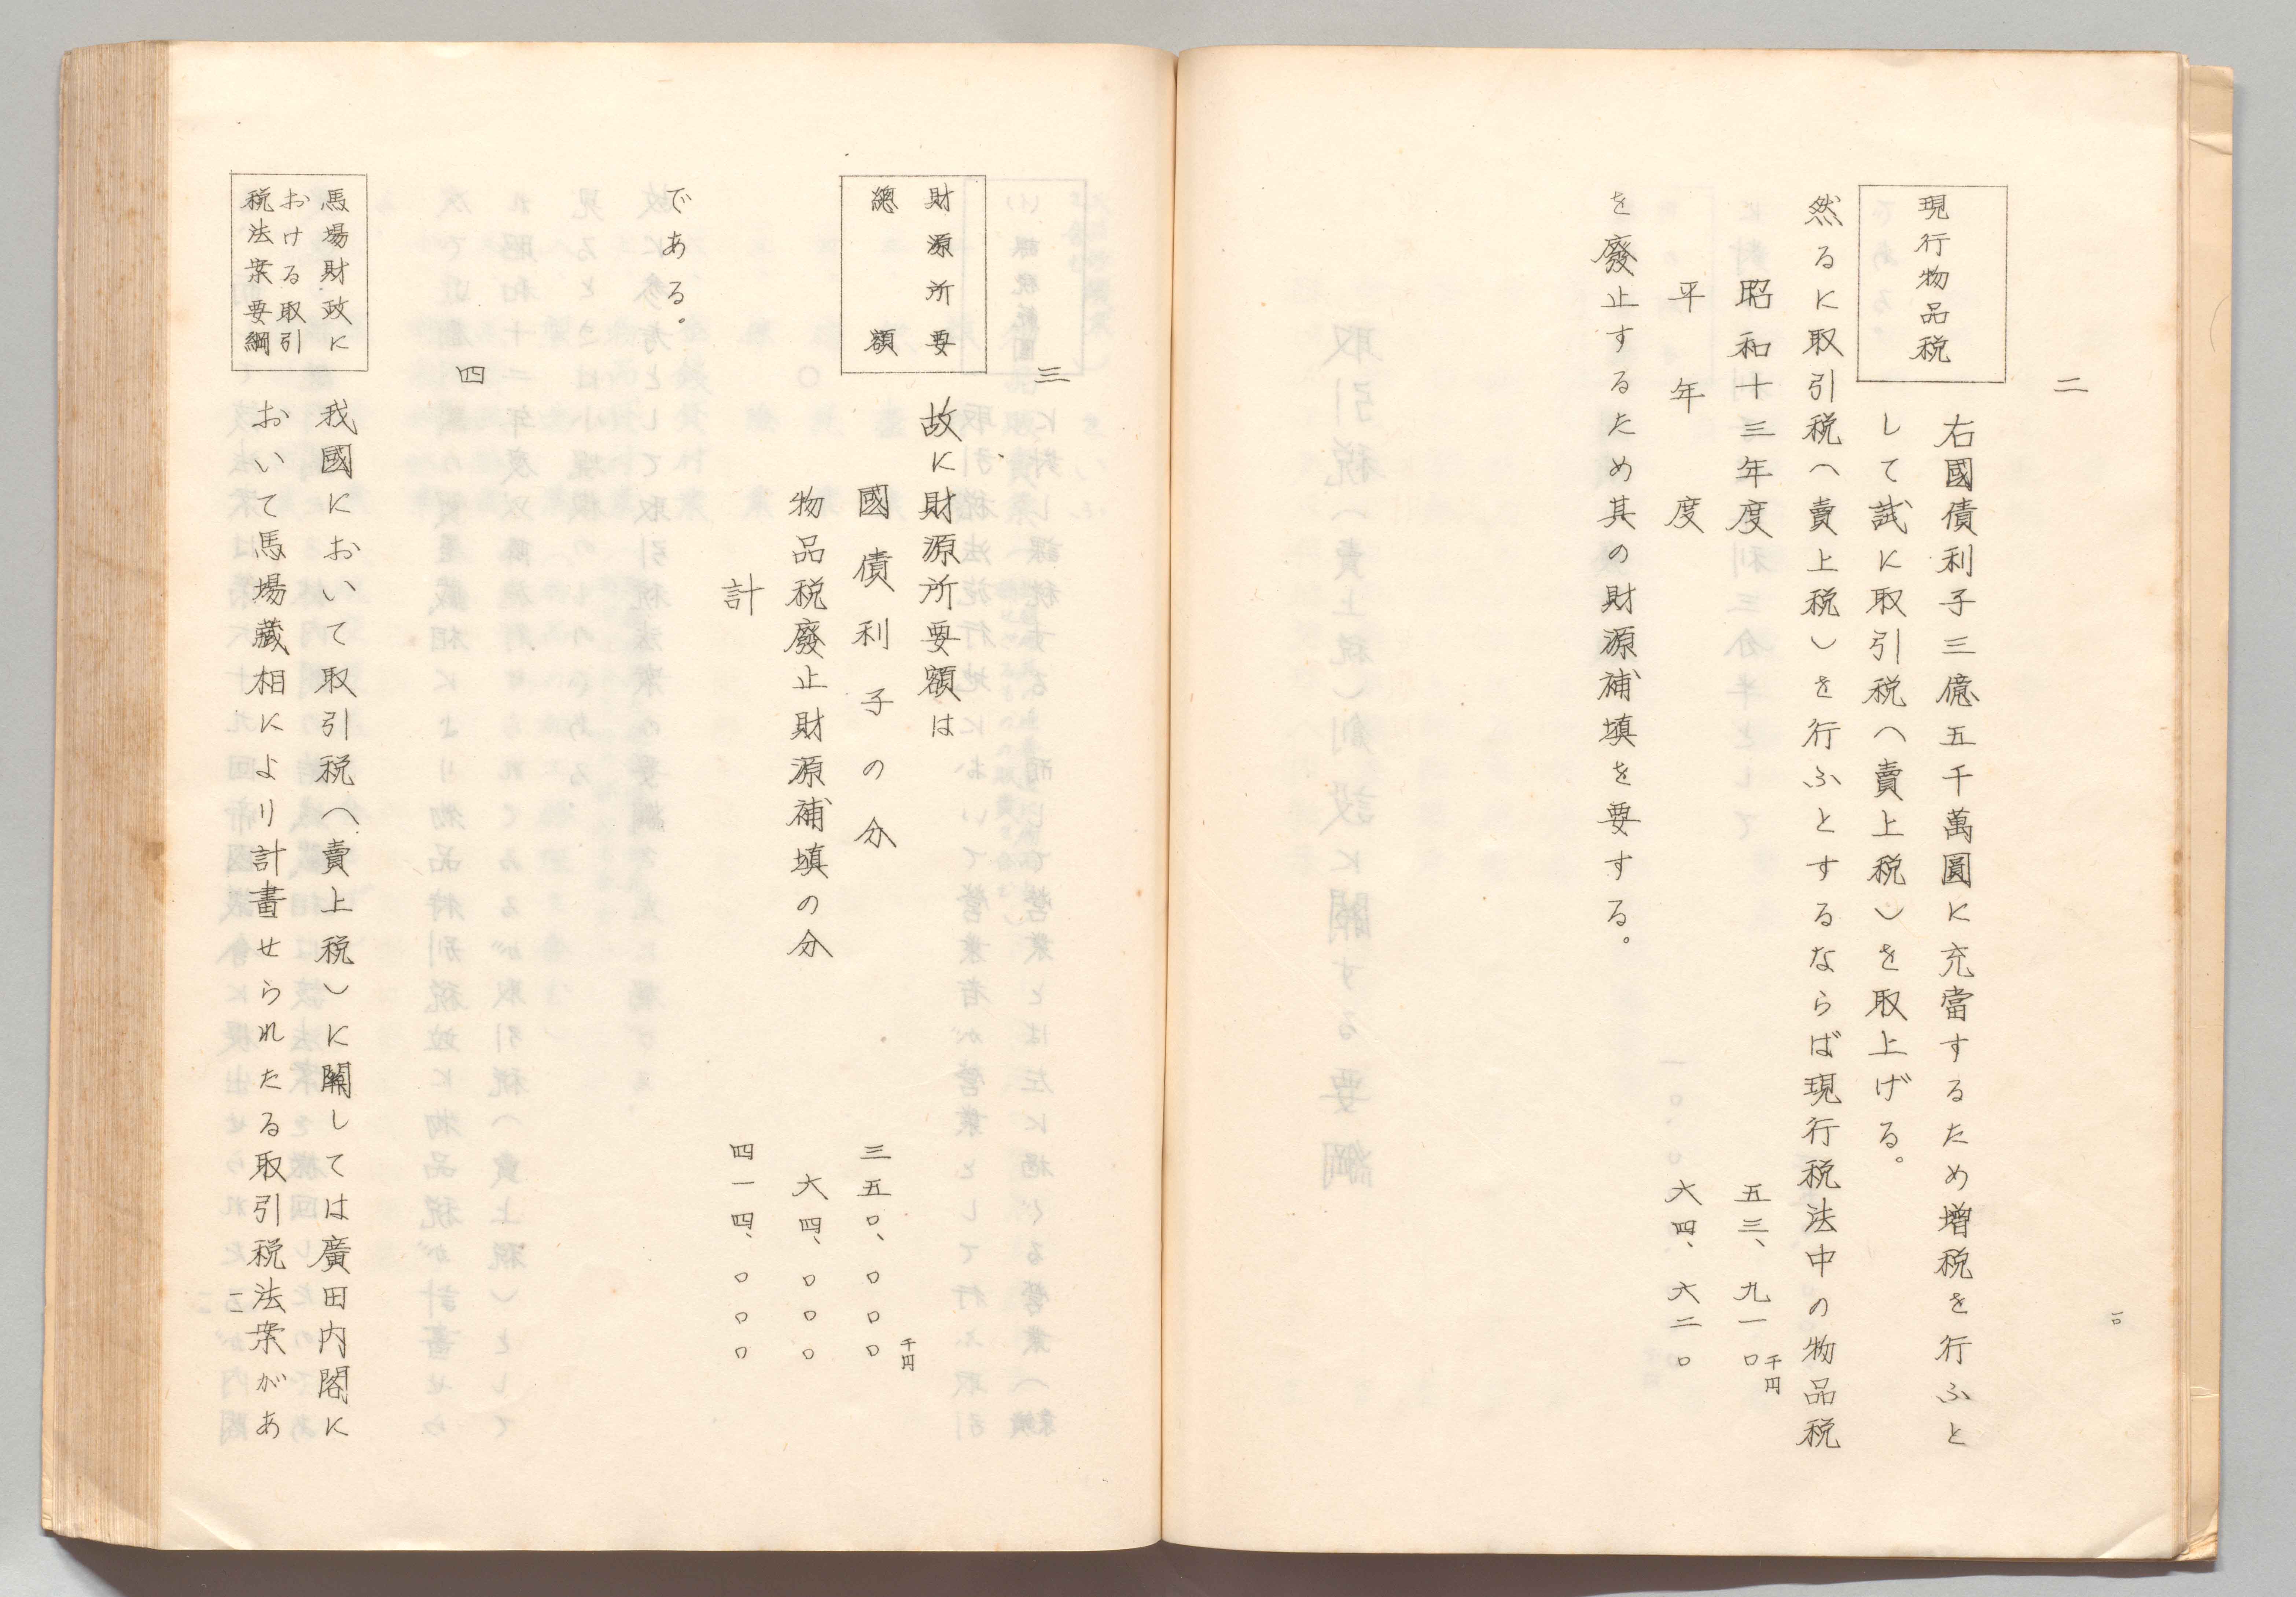 一〇
二
現行物品税
右國債利子三億五千萬圓に充當するため増税を行ふと
して試に取引税(賣上税)を取上げる。
然るに取引税(賣上税)を行ふとするならば現行税法中の物品税
昭和十三年度 五三、九一〇千円
平年度 六四、六二〇
を廢止するため其の財源補塡を要する。
三
財源所要
總額
故に財源所要額は
國債利子の分 三五〇、〇〇〇千円
物品税廢止財源補塡の分 六四、〇〇〇
計 四一四、〇〇〇
である。
四
馬場財政に
おける取引
税法案要綱
我國において取引税(賣上税)に關しては廣田内閣に
おいて馬場藏相により計畫せられたる取引税法案があ
一一